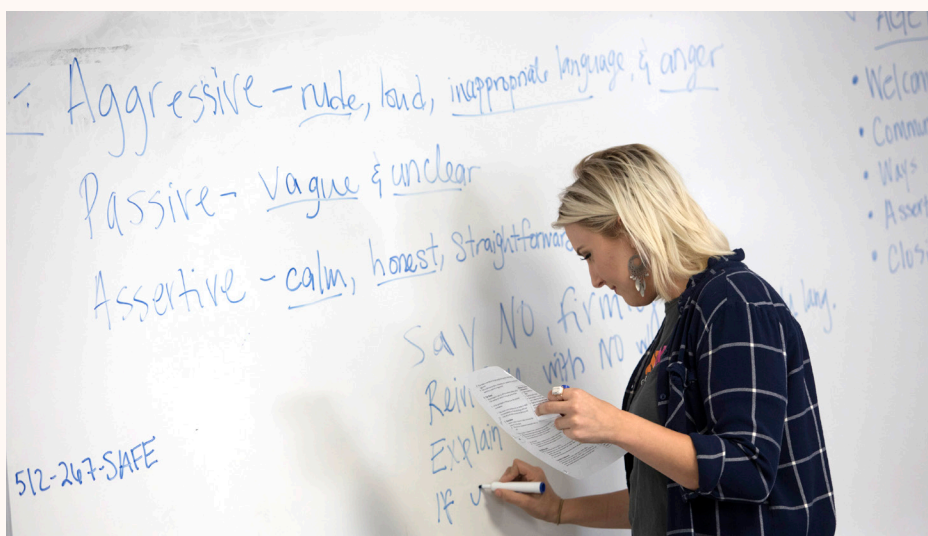 Aggressive - rude, loud, inappropriate language, & anger
Passive - vague & unclear
Assertive - calm, honest, straightforward
Say NO, firmly
lang.
with NO
Explain
If
512-267-SAFE
AGE
Welcom
Commun
Ways
Assert
Closi